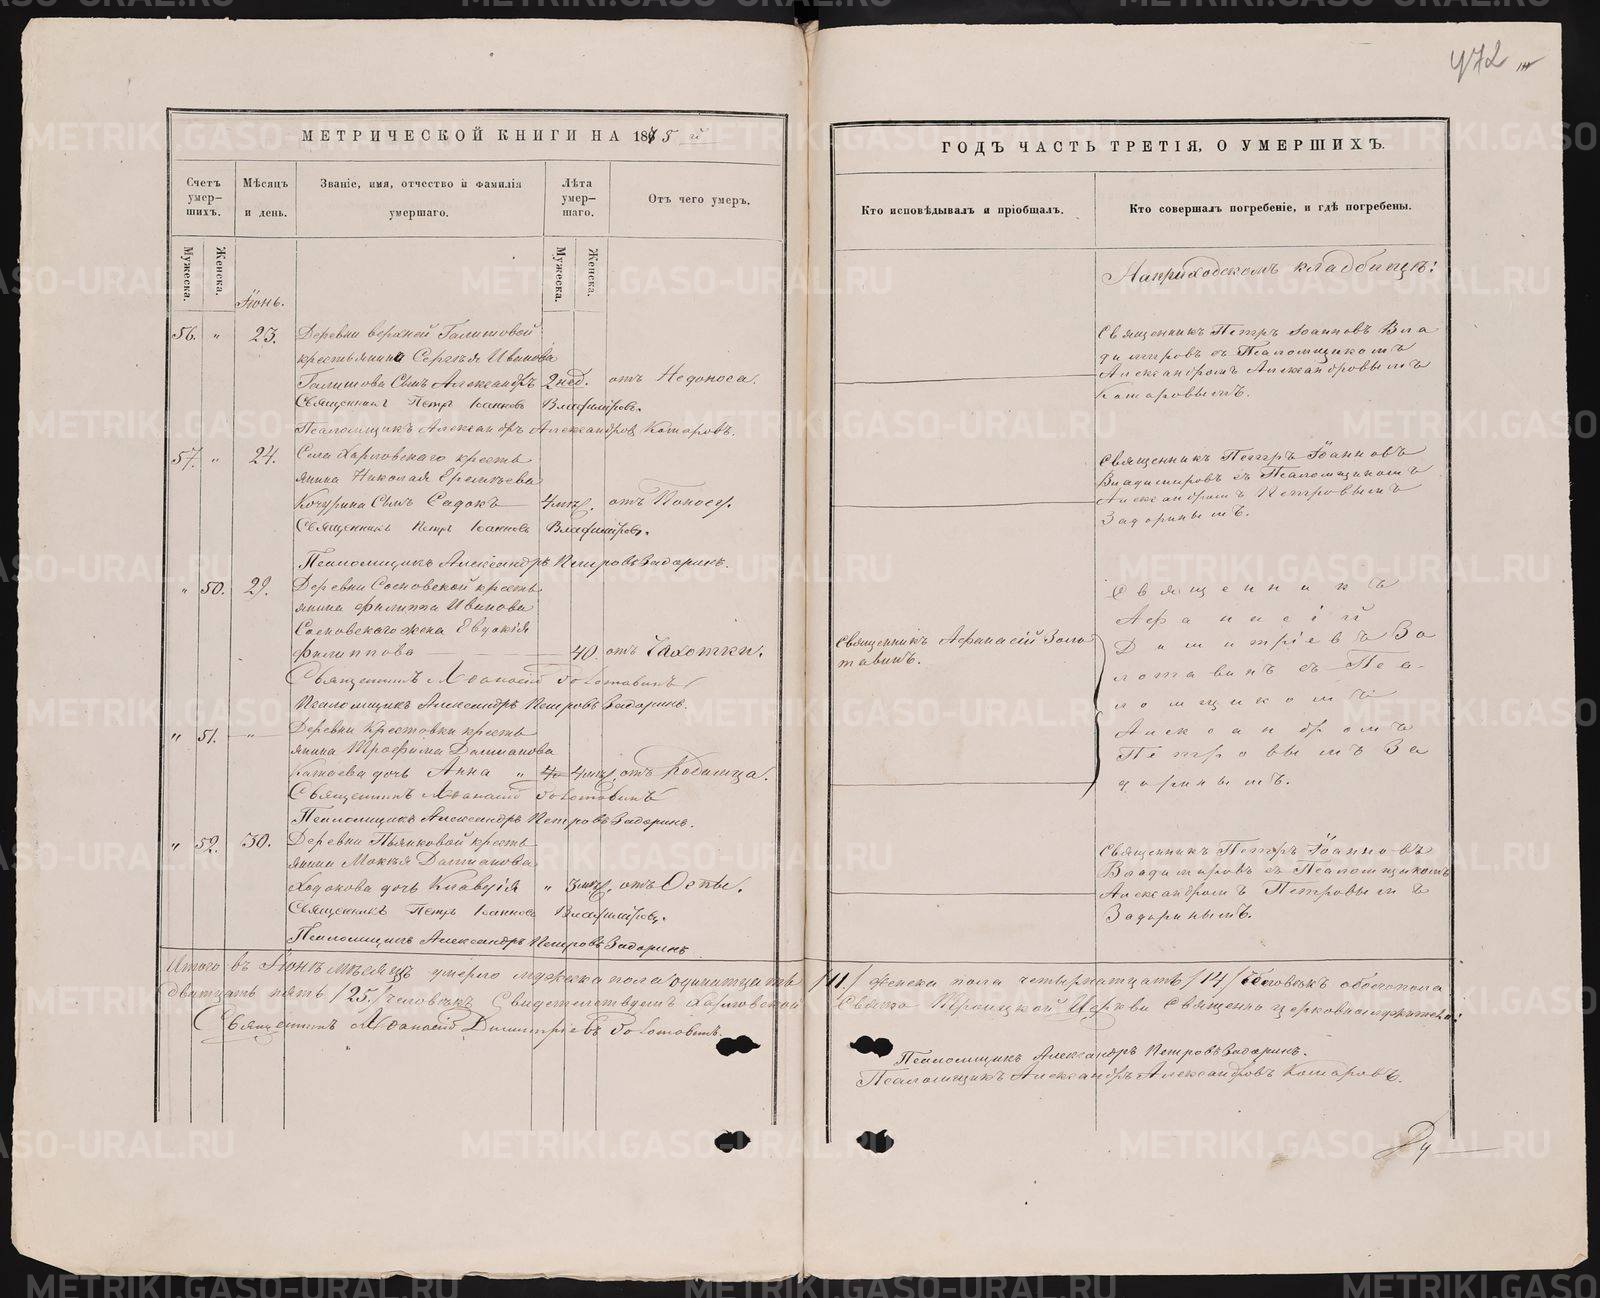 472
МЕТРИЧЕСКОЙ КНИГИ НА 1875 й
ГОДЪ ЧАСТЬ ТРЕТІЯ, О УМЕРШИХЪ.
Счетъ умер-шихъ.
Мѣсяцъ и день.
Званіе, имя, отчество и фамилія умершаго.
Лѣта умер-шаго.
Отъ чего умеръ.
Кто исповѣдывалъ и пріобщалъ.
Кто совершалъ погребеніе, и гдѣ погребены.
Мужеска.
Женска.
Мужеска.
Женска.
Іюнь.
На приходскомъ кладбищѣ:
56. " 23. Деревни верхней Галишовой
крестьянина Сергѣя Иванова
Галишова Сынъ Александръ 2 нед. отъ Недоноса.
Священникъ Петръ Іоанновъ Владимировъ.
Псаломщикъ Александръ Александровъ Комаровъ.
Священникъ Петръ Іоанновъ Вла
димировъ съ Псаломщикомъ
Александромъ Александровымъ
Комаровымъ.
57. " 24. Села Харловскаго кресть
янина Николая Еремѣева
Кочурина Сынъ Садокъ 4 мѣс. отъ Поносу.
Священникъ Петръ Іоанновъ Владимировъ.
Псаломщикъ Александръ Петровъ Задоринъ.
Священникъ Петръ Іоанновъ
Владимировъ съ Псаломщикомъ
Александромъ Петровымъ
Задоринымъ.
" 50. 29. Деревни Сосновской кресть
янина Филиппа Иванова
Сосновскаго жена Евдокія
Филиппова 40. отъ Чахотки.
Священникъ Афанасій Золотавинъ
Псаломщикъ Александръ Петровъ Задоринъ.
Священникъ Афанасій Золо
тавинъ.
Священникъ
Афанасій
Димитріевъ Зо
лотавинъ съ Пса-
ломщикомъ
Александромъ
Петровымъ За
доринымъ.
" 51. " Деревни Крестовки кресть
янина Трофима Даміанова
Катаева дочь Анна " 4 мѣс. отъ Родимца.
Священникъ Афанасій Золотавинъ
Псаломщикъ Александръ Петровъ Задоринъ.
" 52. 30. Деревни Пьянковой кресть
янина Мокѣя Даміанова
Ходокова дочь Клавдія " 3 мѣс. отъ Оспы.
Священникъ Петръ Іоанновъ Владимировъ.
Псаломщикъ Александръ Петровъ Задоринъ
Священникъ Петръ Іоанновъ
Владимировъ съ Псаломщикомъ
Александромъ Петровымъ
Задоринымъ.
Итого въ Іюнѣ мѣсяцѣ умерло мужеска пола одинатцать /11./ женска пола четырнатцать /14/ человѣкъ обоего пола
Двадцать пять /25./ человѣкъ Свидетельствуемъ Харловской Свято Троицкой Церкви Священно церковнослужители:
Священникъ Афанасій Димитріевъ Золотавинъ.
Псаломщикъ Александръ Петровъ Задоринъ.
Псаломщикъ Александръ Александровъ Комаровъ.
METRIKI.GASO-URAL.RU